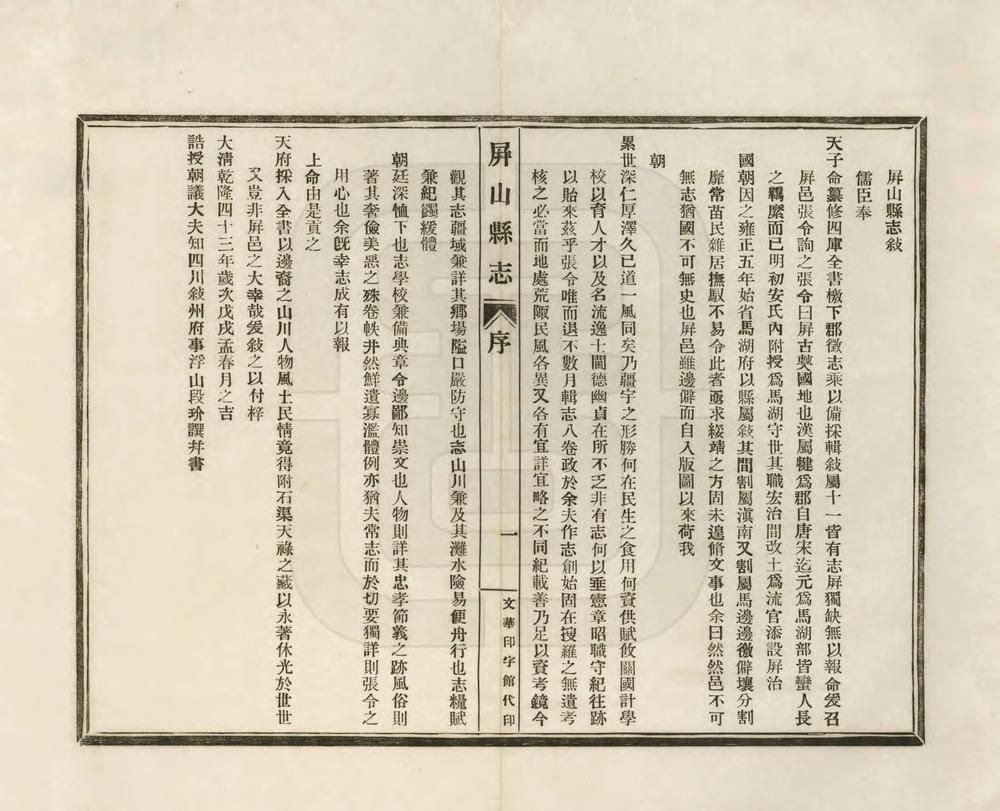 屏山縣志敍
儒臣奉
天子命纂修四庫全書檄下郡徵志乘以備採輯敍屬十一皆有志屏獨缺無以報命爰召
屏邑張令詢之張令曰屏古僰國地也漢屬犍爲郡自唐宋迄元爲馬湖部皆蠻人長
之羈縻而已明初安氏內附授爲馬湖守世其職宏治間改土爲流官添設屏治
國朝因之雍正五年始省馬湖府以縣屬敍其間割屬滇南又割屬馬邊邊徼僻壤分割
靡常苗民雜居撫馭不易令此者亟求綏靖之方固未遑脩文事也余曰然然邑不可
無志猶國不可無史也屏邑雖邊僻而自入版圖以來荷我
朝
累世深仁厚澤久已道一風同矣乃疆宇之形勝何在民生之食用何資供賦攸關國計學
校以育人才以及名流逸士閫德幽貞在所不乏非有志何以垂憲章昭職守紀往跡
以貽來茲乎張令唯而退不數月輯志八卷政於余夫作志創始固在搜羅之無遺考
核之必當而地處荒陬民風各異又各有宜詳宜略之不同紀載善乃足以資考鏡今
屏山縣志
序
一
文華印字館代印
觀其志疆域兼詳其鄉場隘口嚴防守也志山川兼及其灘水險易便舟行也志糧賦
兼紀蠲緩體
朝廷深恤下也志學校兼備典章令邊鄙知崇文也人物則詳其忠孝節義之跡風俗則
著其奢儉美惡之殊卷帙井然鮮遺寡濫體例亦猶夫常志而於切要獨詳則張令之
用心也余旣幸志成有以報
上命由是貢之
天府採入全書以邊裔之山川人物風土民情竟得附石渠天祿之藏以永著休光於世世
又豈非屏邑之大幸哉爰敍之以付梓
大清乾隆四十三年歲次戊戌孟春月之吉
誥授朝議大夫知四川敍州府事浮山段玠譔幷書